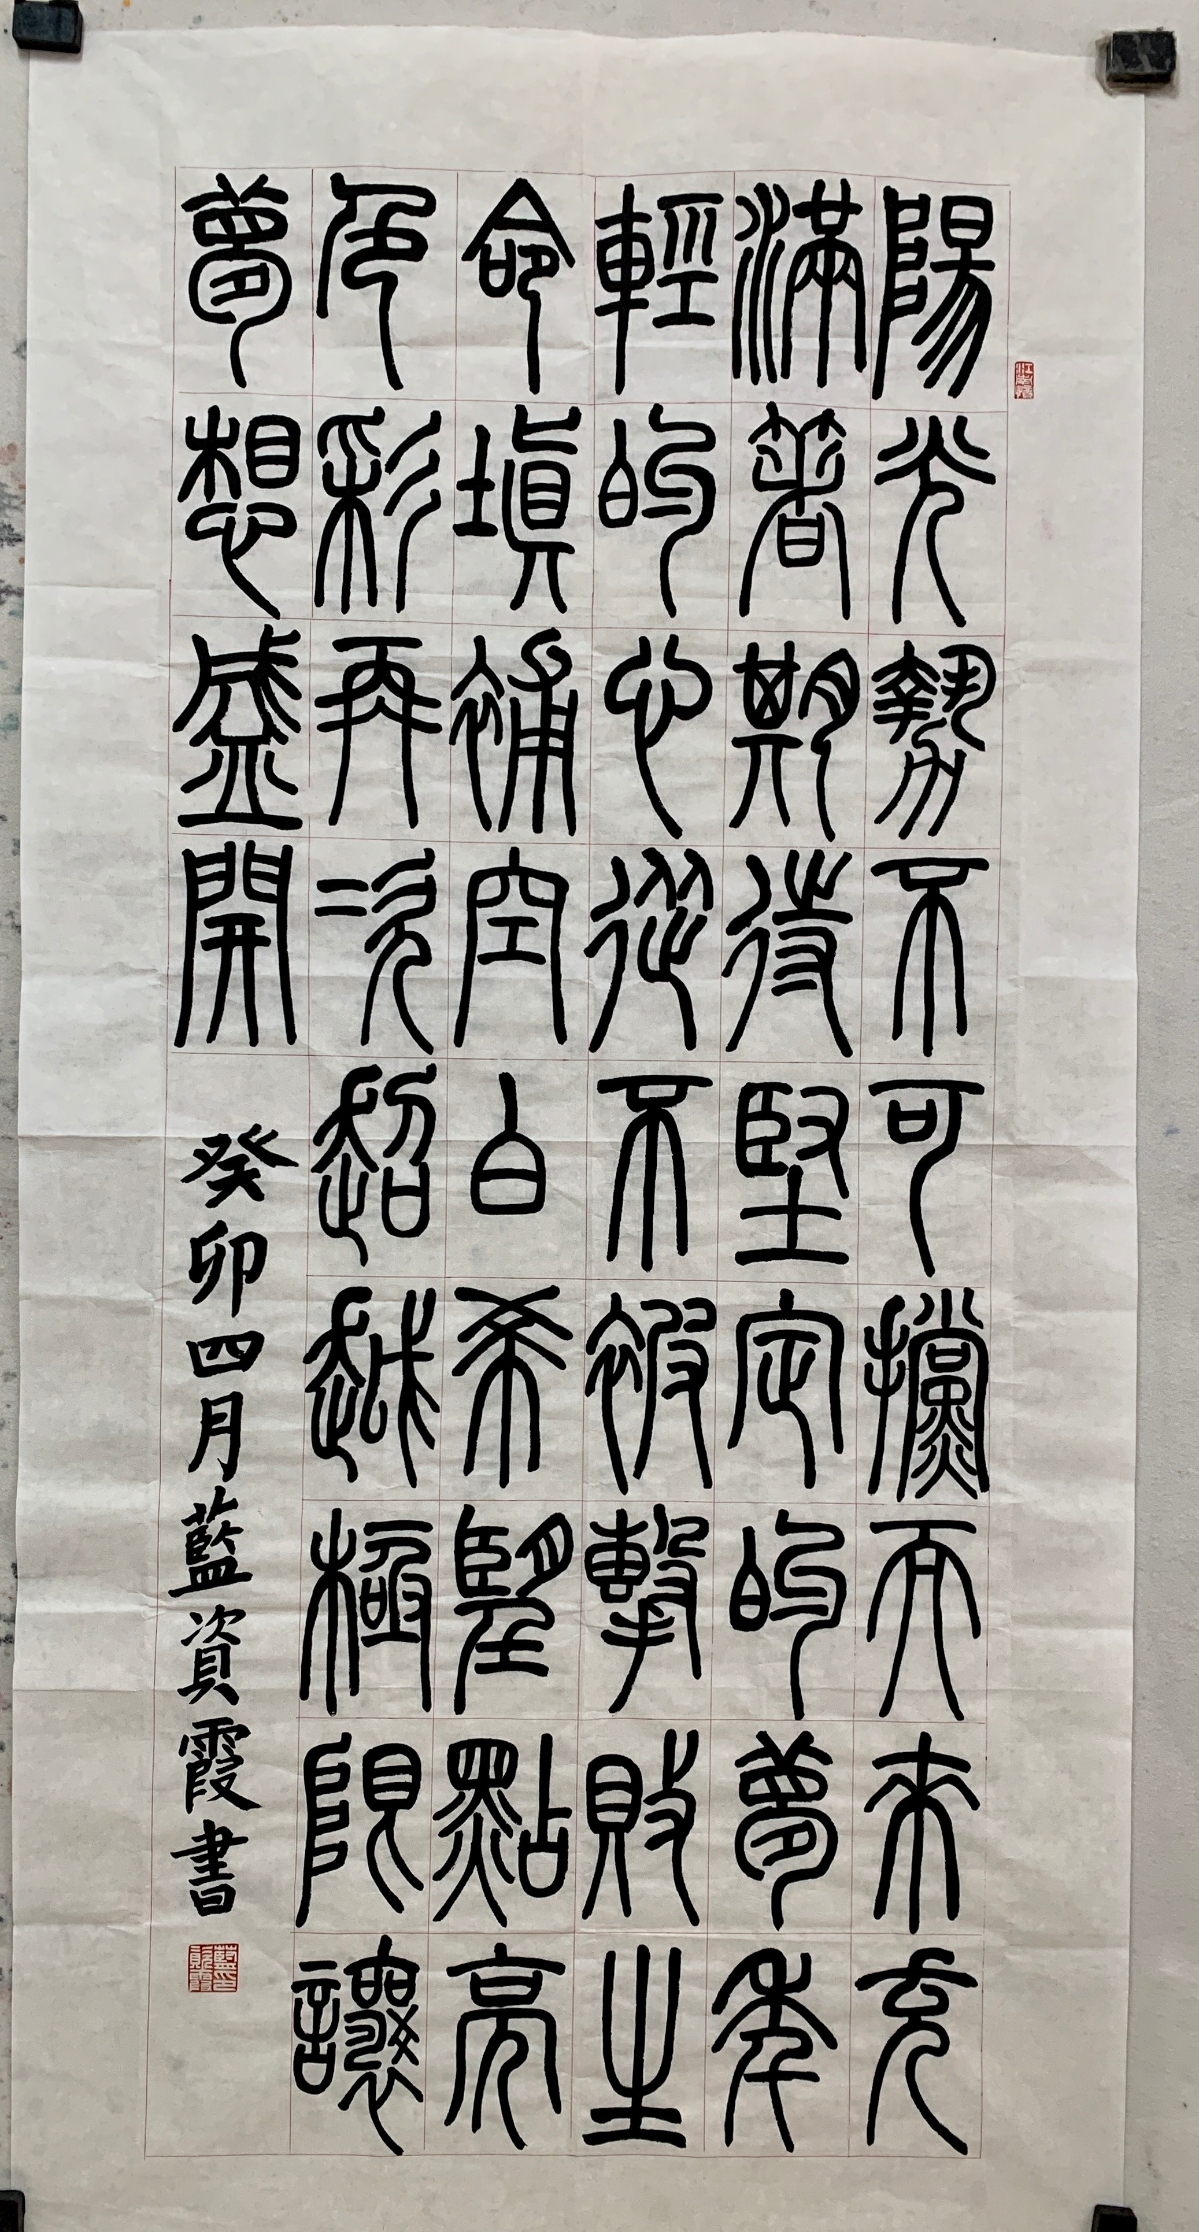 陽光勢不可擋而來充
滿著期待堅定的夢年
輕的心從不被擊敗生
命填補空白希望點亮
色彩再次超越極限讓
夢想盛開
癸卯四月藍資霞書